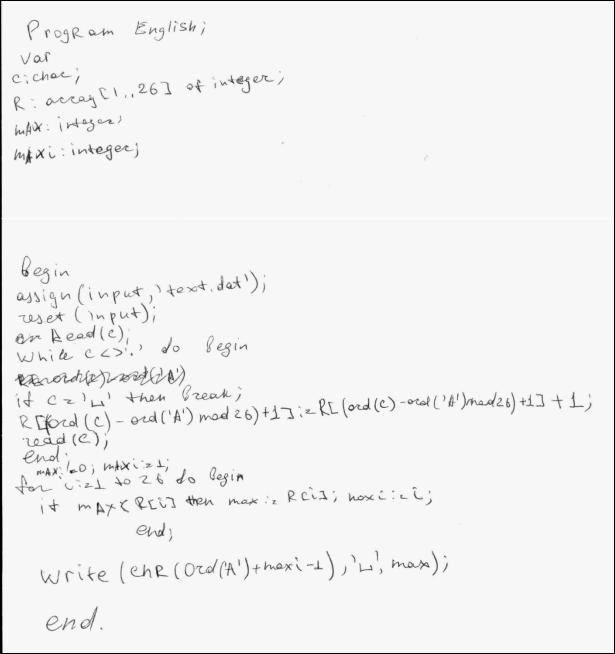 Program English;
var
c:char;
R: array[1..26] of integer;
mAX: integer;
mAXi: integer;
Begin
assign(input,'text.dat');
reset (input);
Read(c);
While c<>'.' do Begin
if c='␣' then Break;
R[(ord(c)-ord('A') mod 26)+1]:=R[(ord(c)-ord('A') mod 26)+1]+1;
read(c);
end;
mAX:=0; mAXi:=1;
for i:=1 to 26 do Begin
if mAX<R[i] then max:=R[i]; maxi:=i;
end;
Write (chR(Ord('A')+maxi-1),'␣', max);
end.